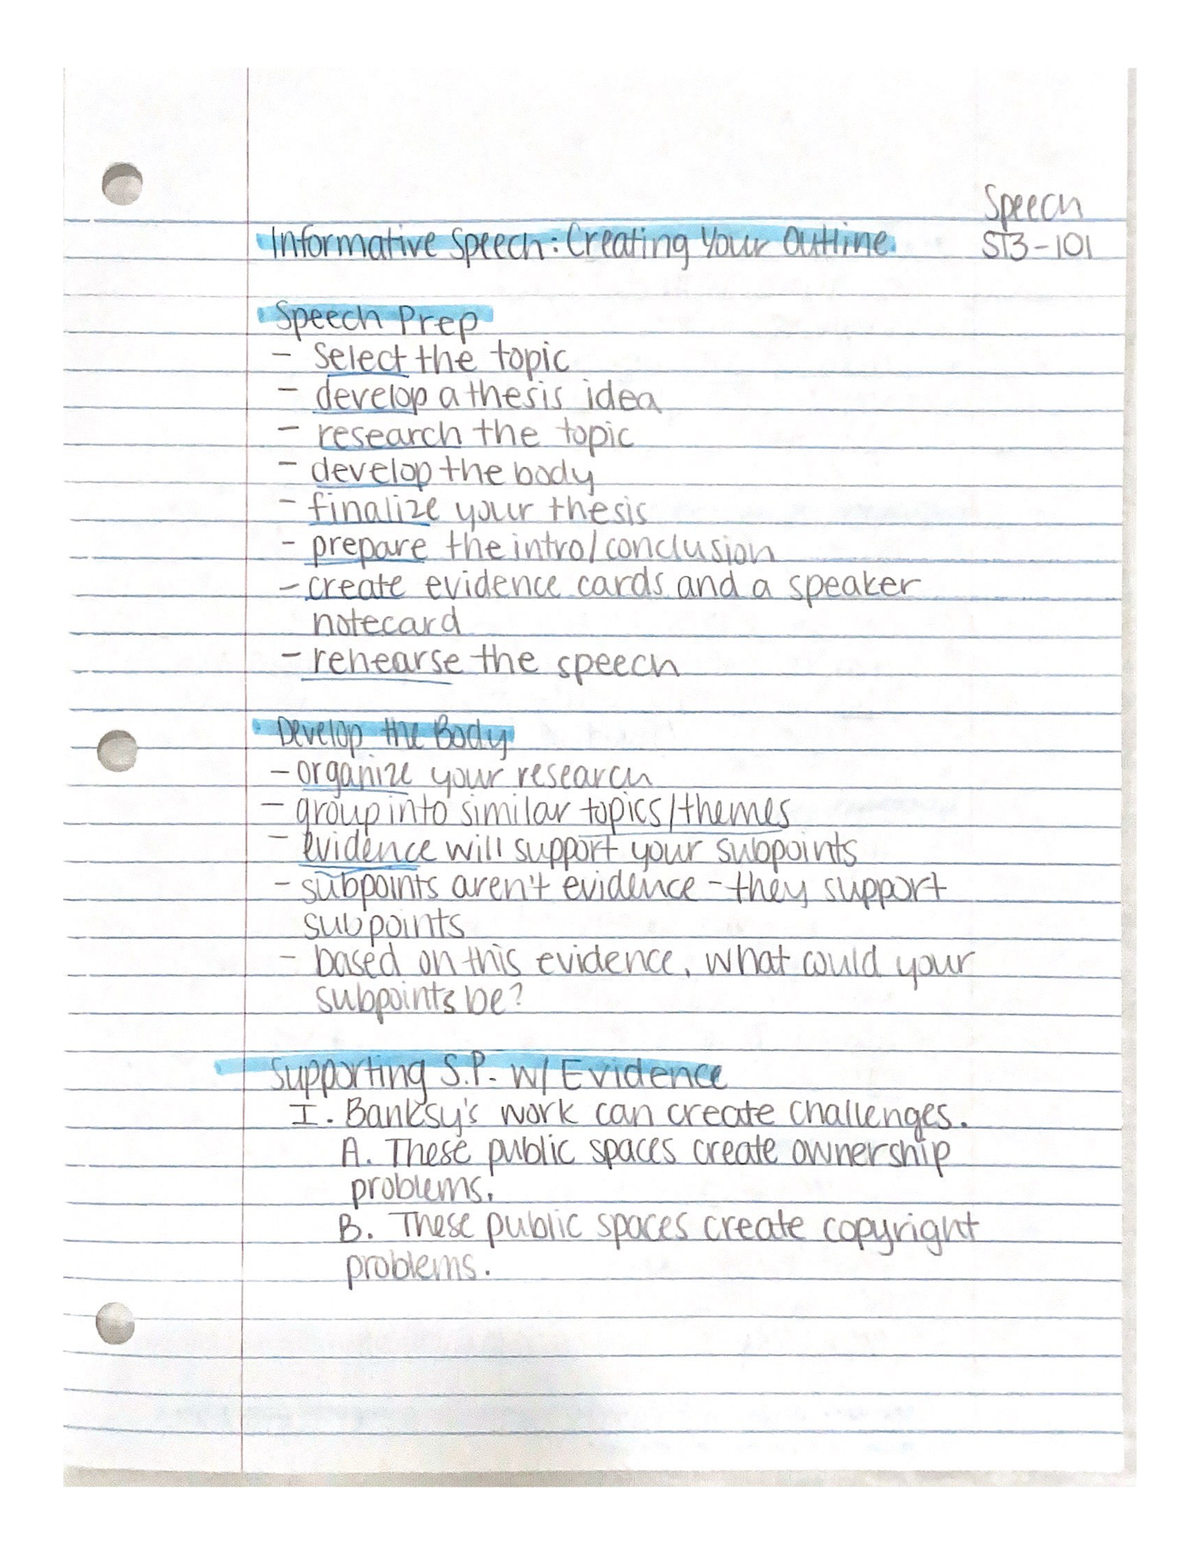 Speech
Informative Speech: Creating Your Outline.
ST3-101
Speech Prep
- Select the topic
- develop a thesis idea
- research the topic
- develop the body
- finalize your thesis
- prepare the intro/conclusion
- create evidence cards and a speaker
notecard
- rehearse the speech
Develop the Body
- organize your research
- group into similar topics/themes
- Evidence will support your subpoints
- subpoints aren't evidence - they support
subpoints
- based on this evidence, what could your
subpoints be?
Supporting S.P. w/ Evidence
I. Banksy's work can create challenges.
A. These public spaces create ownership
problems.
B. These public spaces create copyright
problems.